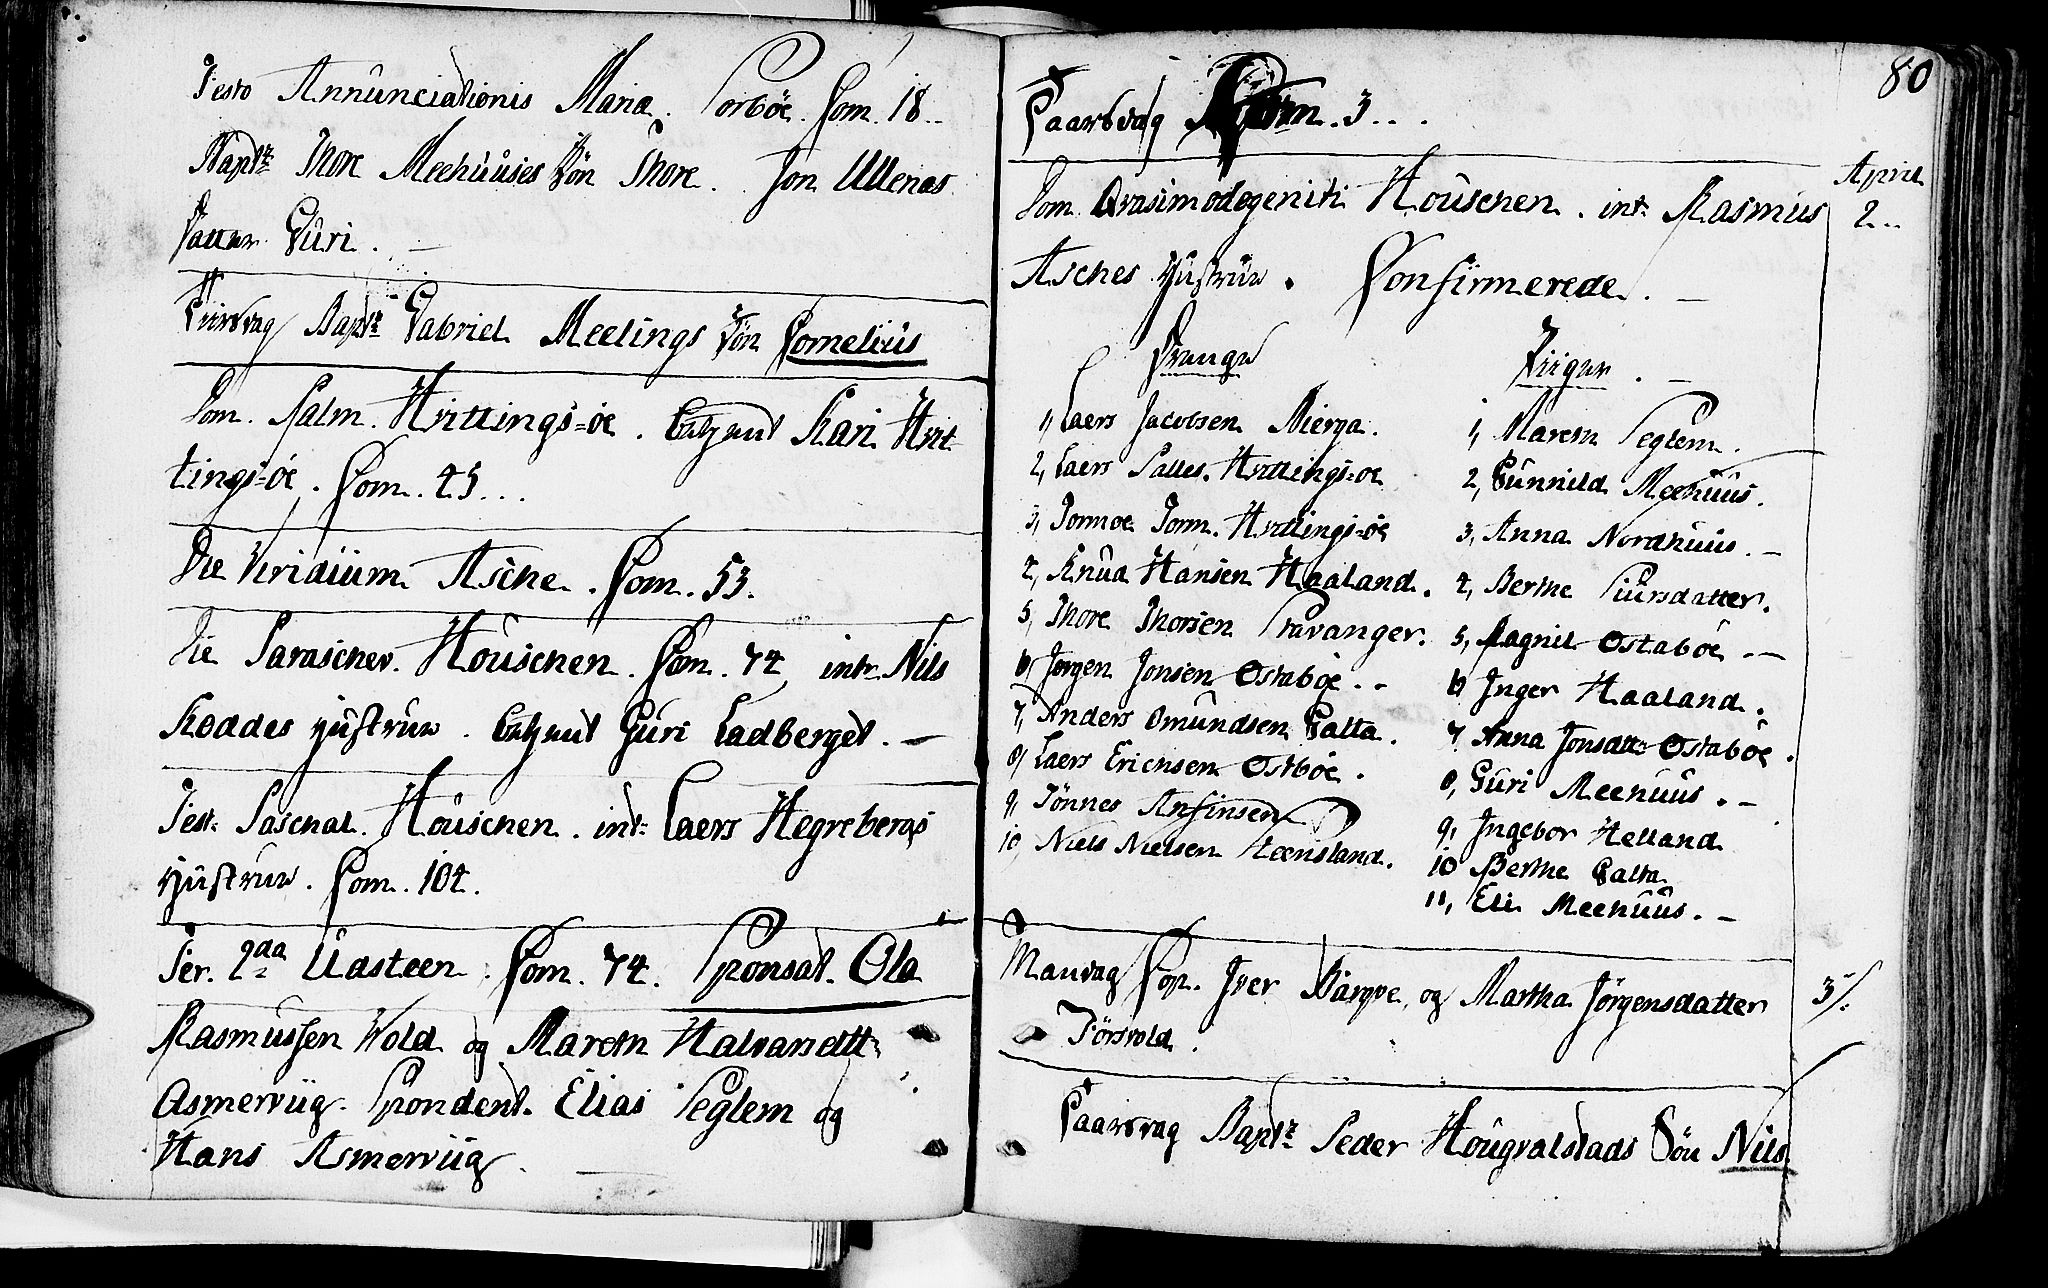 Festo Annunciationis Mariæ. Sorböe. Com. 18..
Bapt: Thore Meehuuses Sön Thore. Jon Ullenæs
Datter Guri.
Tiirsdag Bapt: Gabriel Meelings Sön Cornelius
Dom. Palm. Hvittings-öe. Kari Hvit
tings-öe. Com. 45...
Die Viridium Asche. Com. 53.
Die Paraschev. Houschen. Com. 74. intr. Nils
Roddes Hustrue. Guri Ladberget.
Fest. Paschal. Houschen. int: Laers Hegrebergs
Hustrue. Com. 104.
Fer. 2da Udsteen. Com. 74. Sponsat. Ola
Rasmussen Wold og Mareth Halvarsdtt:
Asmerviig. Spondent. Elias Seglem og
Hans Asmerviig.
80
Taarsdag Com. 3...
April
Dom. Qvasimodogeniti Houschen. int. Rasmus
2..
Asches Hustrue. Confirmerede.
Drenge
Piiger.
1, Laers Jacobsen Bierga.
2, Laers Salles. Hvittings-öe
3, Tormoe Torm. Hvittings-öe
4, Knud Hansen Haaland.
5, Thore Thorsen Stavanger.
6, Jörgen Jonsen Ostaböe..
7, Anders Omundsen Galta.
8, Laers Erichsen Ostböe.
9, Tönnes Anfinsen
10, Niels Nielsen Steensland.
1, Mareth Seglem.
2, Gunnild Meehuus.
3, Anna Nordhuus.
4, Berthe Siursdatter.
5, Ragnil Ostaböe.
6, Inger Haaland.
7, Anna Jonsdtt: Ostaböe.
8, Guri Meehuus.
9, Ingebor Helland
10 Berthe Galta
11, Eli Meehuus.
Mandag Cop. Iver og Martha Jörgensdatter
3/.
Törsvold.
Taarsdag Bapt: Peder Hougvalstads Sön Nils.